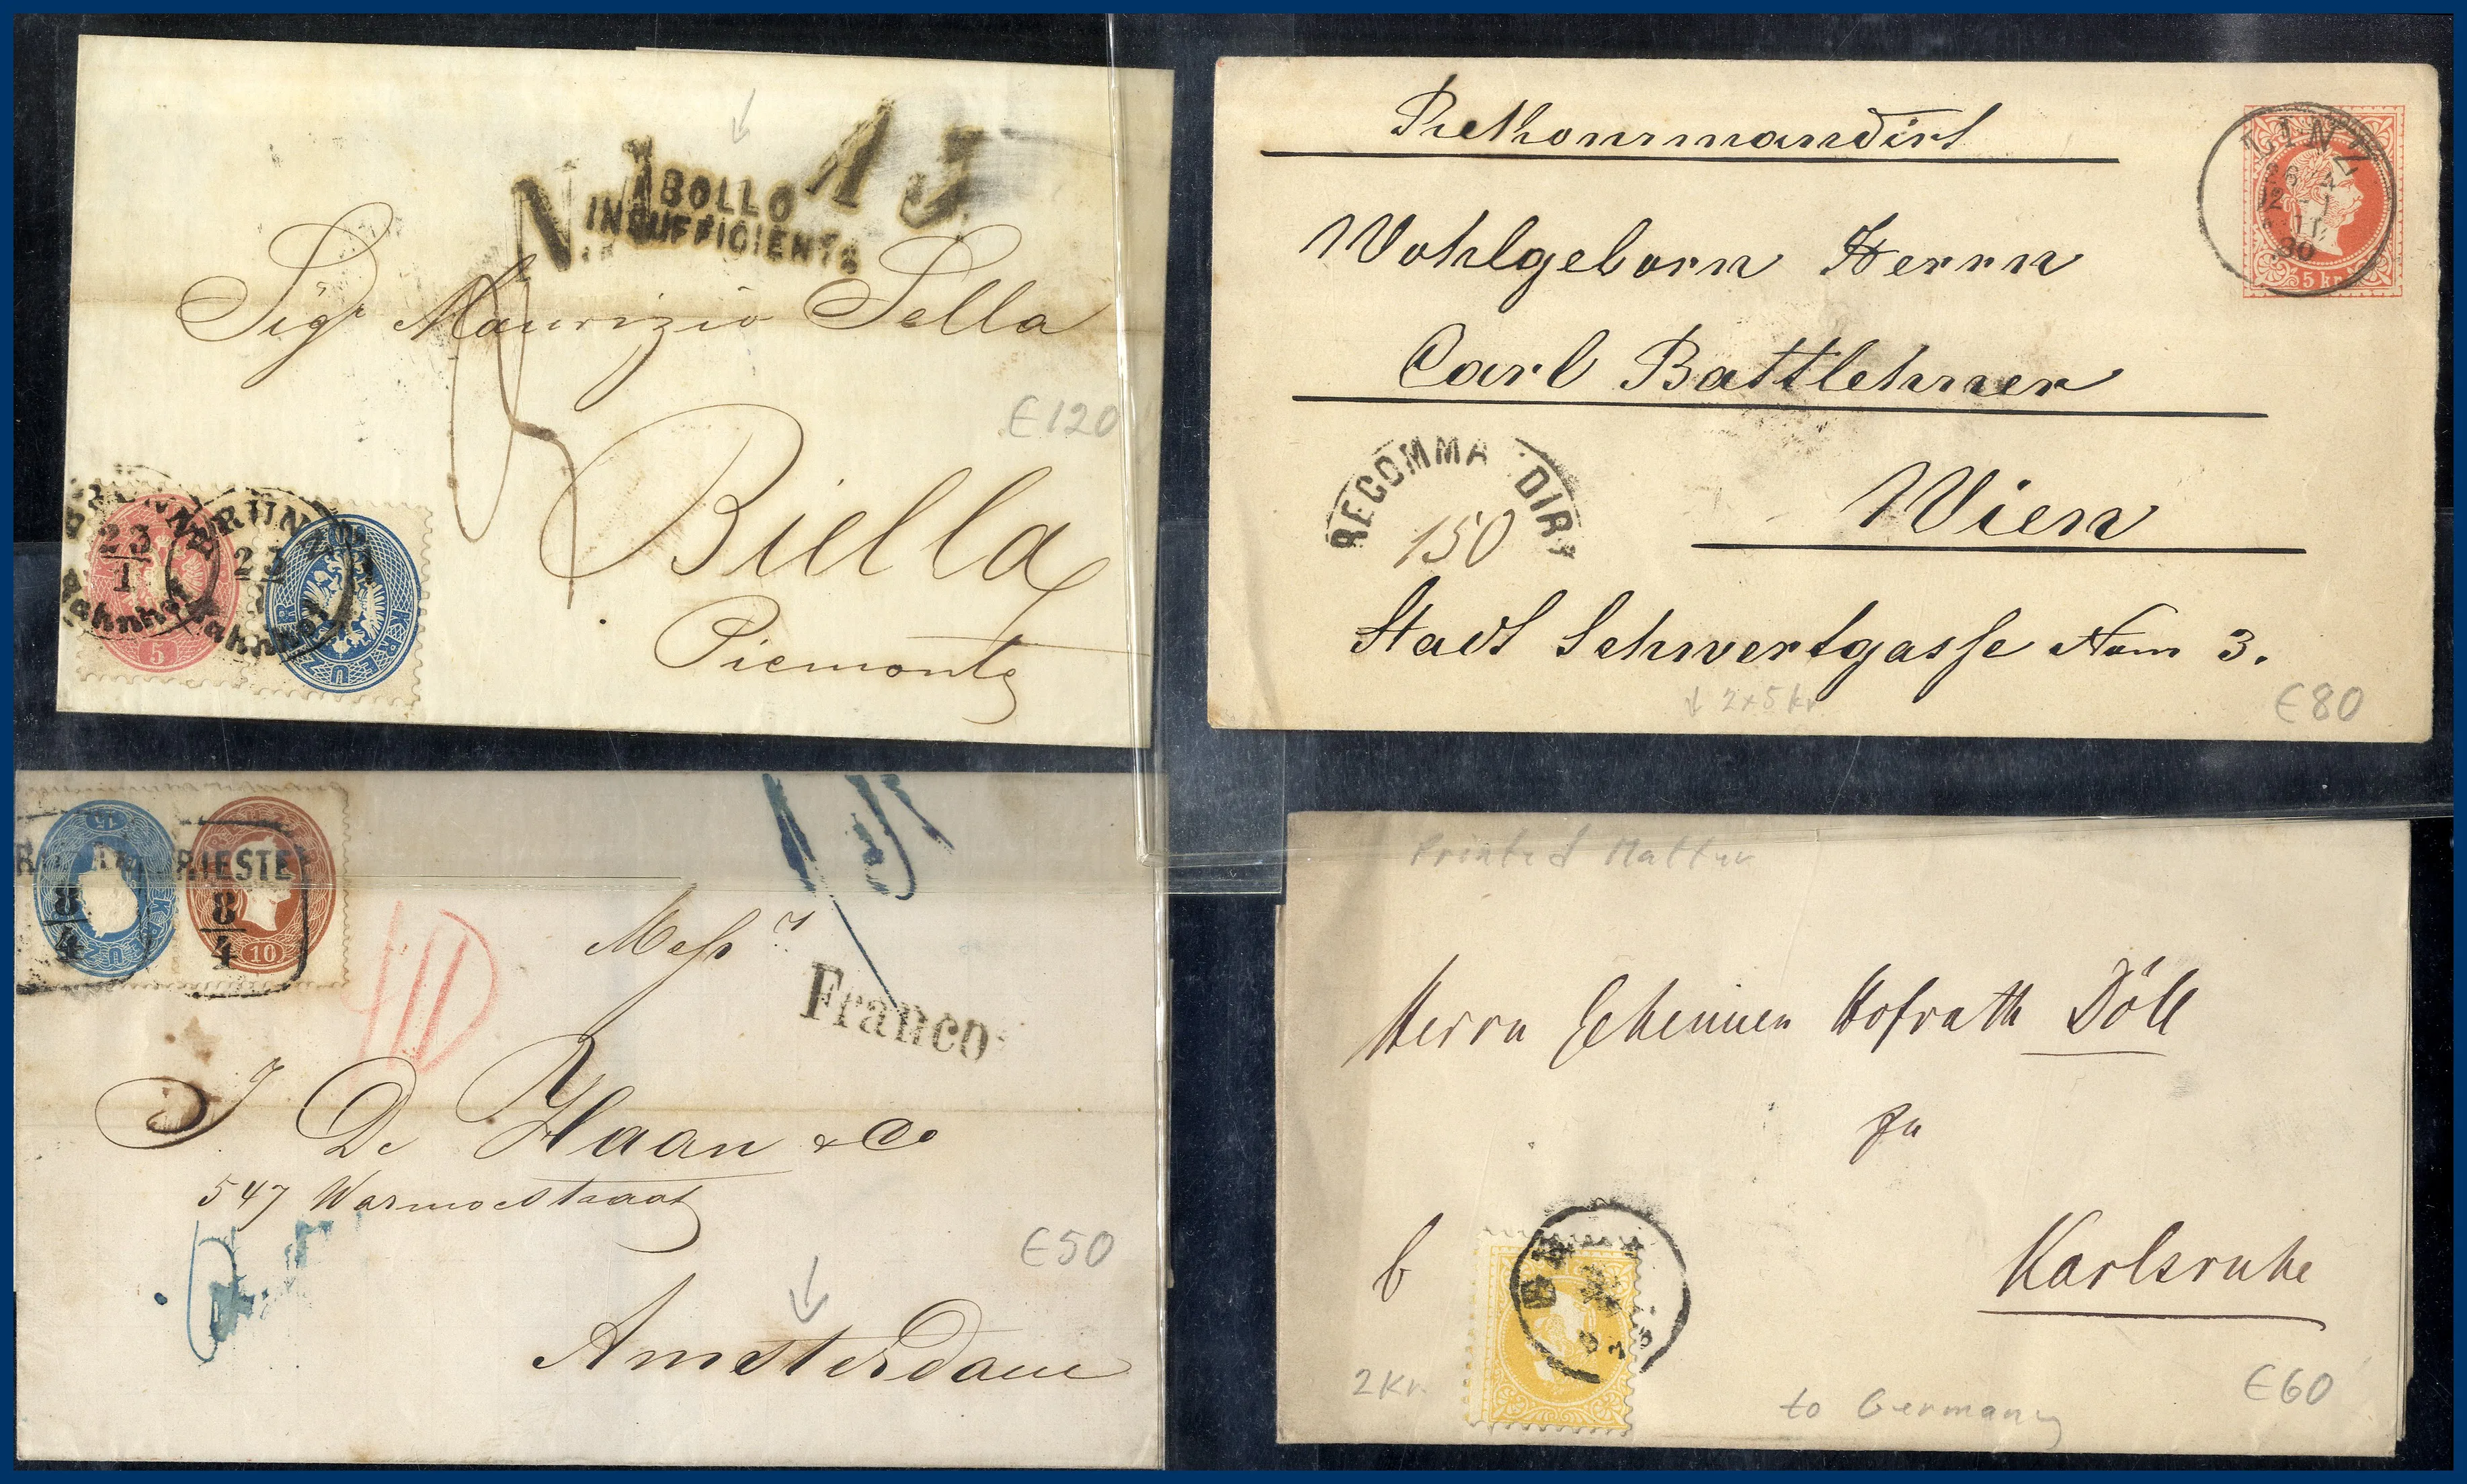 ABOLLO
INSUFFICIENTE
Sigr Maurizio Sella
€120
Biella
Piemonte
BRÜNN
23
1
Bahnhof
BRÜNN
Bahnhof
5
KREUZER
Rekommandirt
LINZ
80
5 kr
Wohlgeborn Herrn
Carl Battlehner
RECOMMANDIRT
150
Wien
Stadt Schwertgasse Nom 3.
↓ 2x5kr
€80
RIESTE
8
4
8
4
10
Messrs
Franco
J De Haan & Co
547 Warmoestraat
€50
Amsterdam
Printed Matter
Herrn Geheimen Hofrath Döll
zu
Karlsruhe
2Kr.
to Germany
€60